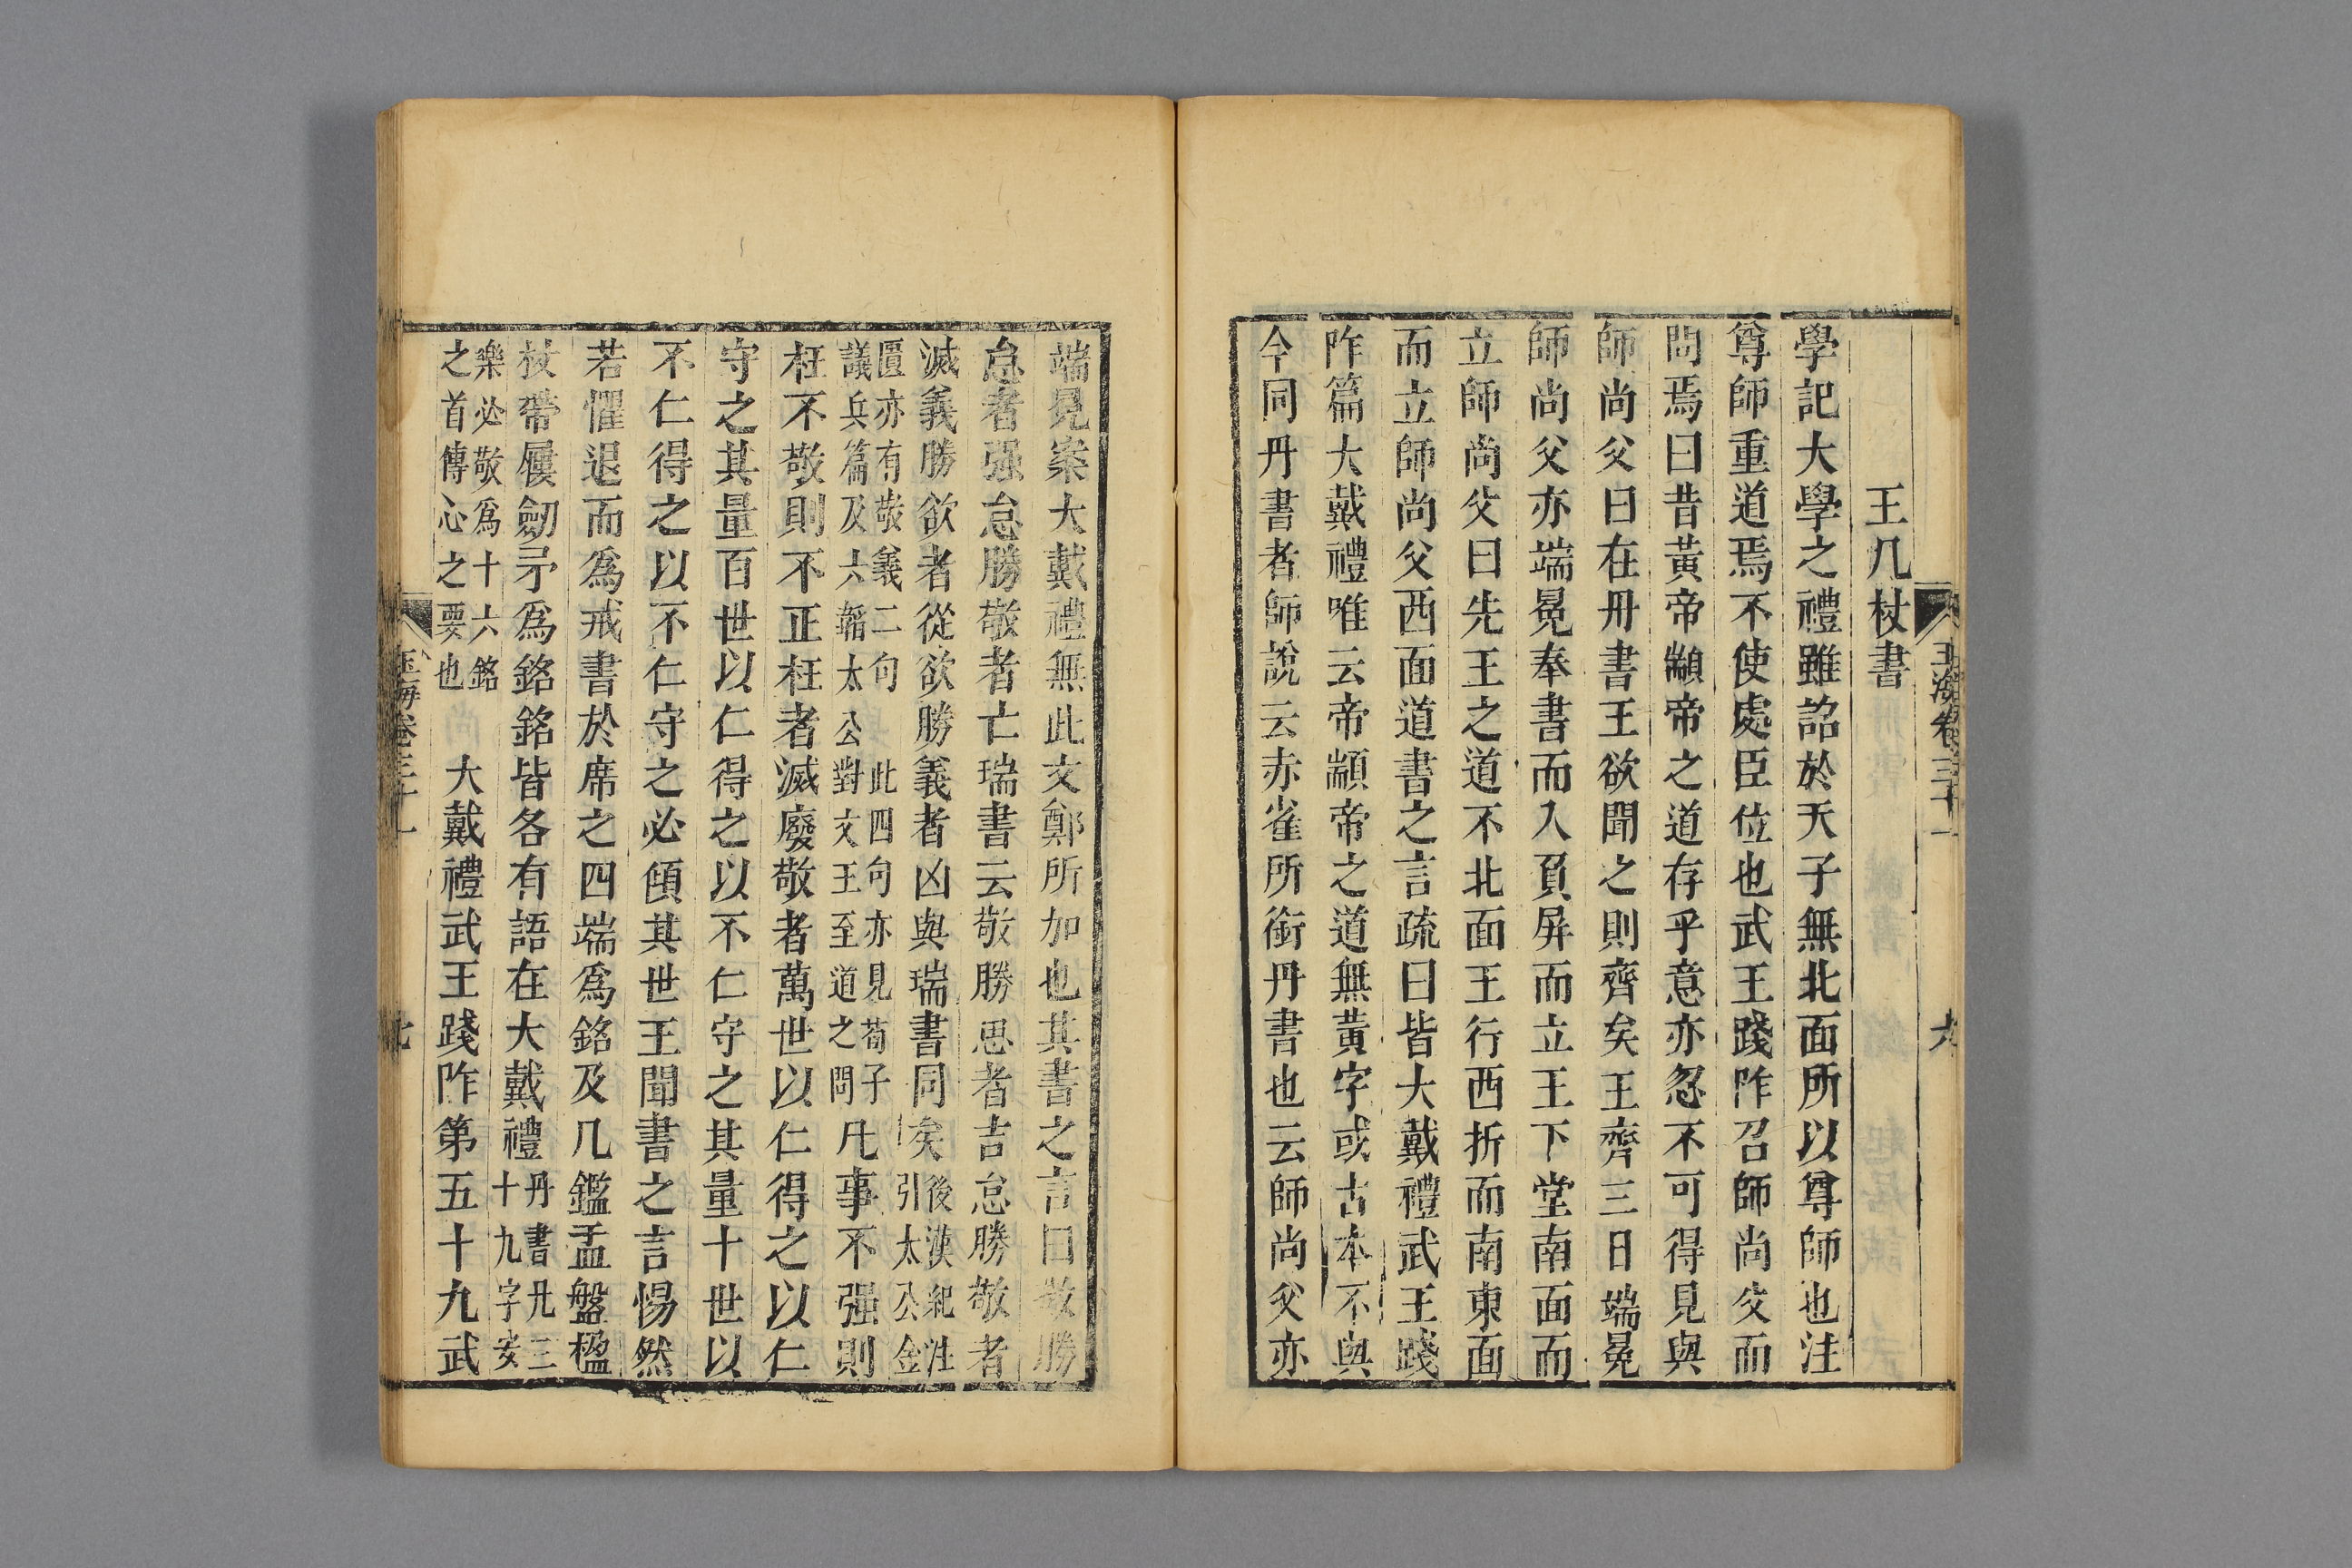 玉海卷三十一
六
王几杖書
學記大學之禮雖詔於天子無北面所以尊師也注
尊師重道焉不使處臣位也武王踐阼召師尚父而
問焉曰昔黃帝顓帝之道存乎意亦忽不可得見與
師尚父曰在丹書王欲聞之則齊矣王齊三日端冕
師尚父亦端冕奉書而入負屏而立王下堂南面而
立師尚父曰先王之道不北面王行西折而南東面
而立師尚父西面道書之言疏曰皆大戴禮武王踐
阼篇大戴禮唯云帝顓帝之道無黃字或古本不與
今同丹書者師說云赤雀所銜丹書也云師尚父亦
端冕案大戴禮無此文鄭所加也其書之言曰敬勝
怠者强怠勝敬者亡瑞書云敬勝怠者吉怠勝敬者
滅義勝欲者從欲勝義者凶與瑞書同矣後漢紀注引太公金
匱亦有敬義二句議兵篇及六韜太公對文王至道之問此四句亦見荀子凡事不强則
枉不敬則不正枉者滅廢敬者萬世以仁得之以仁
守之其量百世以仁得之以不仁守之其量十世以
不仁得之以不仁守之必傾其世王聞書之言惕然
若懼退而爲戒書於席之四端爲銘及几鑑盂盤楹
杖帶屨劒矛爲銘銘皆各有語在大戴禮丹書凡三十九字安
樂必敬爲十六銘之首傳心之要也大戴禮武王踐阼第五十九武
玉海卷三十一